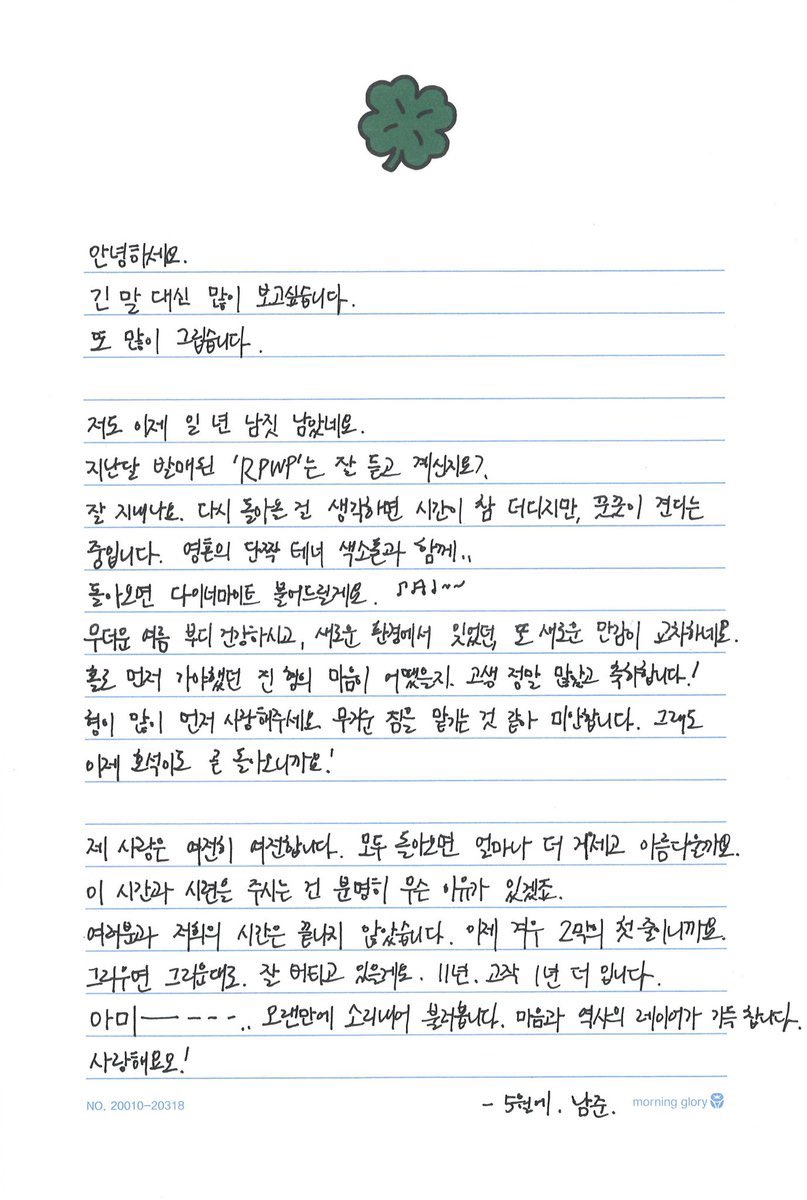 안녕하세요.
긴 말 대신 많이 보고싶습니다.
또 많이 그립습니다.
저도 이제 일 년 남짓 남았네요.
지난달 발매된 'RPWP'는 잘 듣고 계신지요?
잘 지내나요. 다시 돌아온 건 생각하면 시간이 참 더디지만, 꿋꿋이 견디는
중입니다. 영혼의 단짝 테너 색소폰과 함께..
돌아오면 다이너마이트 불어드릴게요. ♪♫♩~~
무더운 여름 부디 건강하시고, 새로운 환경에서 잊었던, 또 새로운 만감이 교차하네요.
홀로 먼저 가야했던 진 형의 마음이 어땠을지. 고생 정말 많았고 축하합니다!
형이 많이 먼저 사랑해주세요. 무거운 짐을 맡기는 것 같아 미안합니다. 그래도
이제 호석이도 곧 돌아오니까요!
제 사랑은 여전히 여전합니다. 모두 돌아오면 얼마나 더 거세고 아름다울까요.
이 시간과 시련을 주시는 건 분명히 무슨 이유가 있겠죠.
여러분과 저희의 시간은 끝나지 않았습니다. 이제 겨우 2막의 첫 줄이니까요.
그리우면 그리운대로. 잘 버티고 있을게요. 11년. 고작 1년 더 입니다.
아미ㅡㅡ---.. 오랜만에 소리내어 불러봅니다. 마음과 역사의 레이어가 가득 찹니다.
사랑해요오!
- 5월에. 남준.
NO. 20010-20318
morning glory